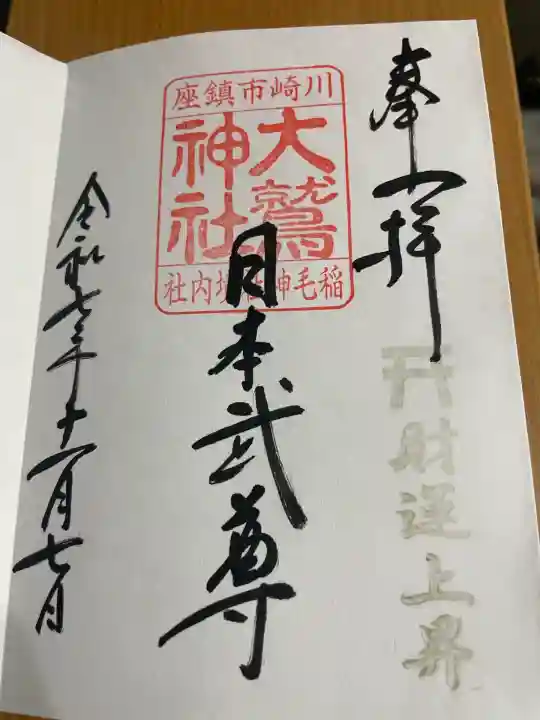 奉拝
開財運上昇
川崎市鎮座
大鷲
神社
稲毛神社境内社
日本武尊
令和七年十一月七日